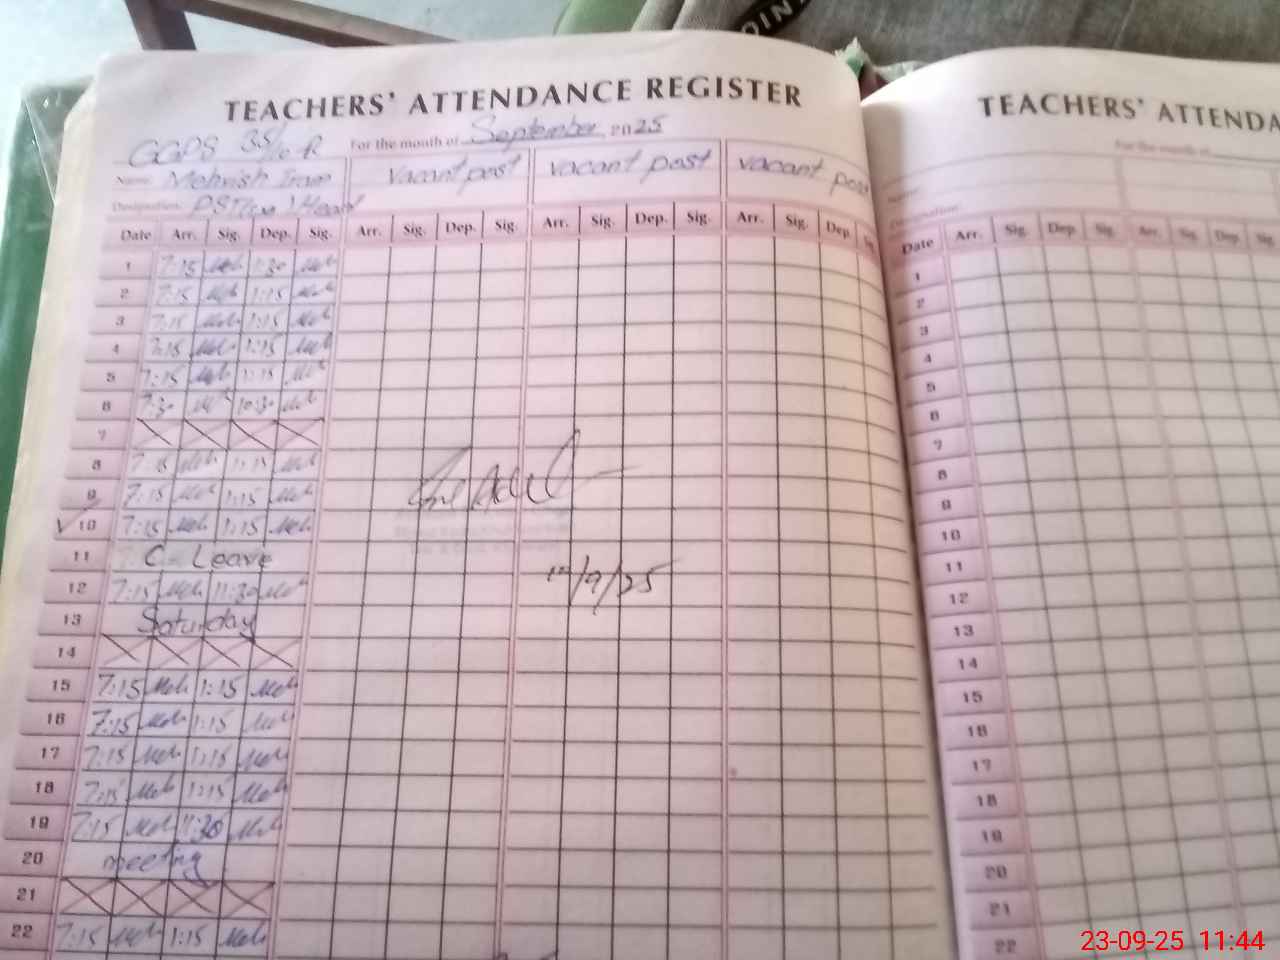 OIN
TEACHERS' ATTENDANCE REGISTER
GGPS 35/10-R For the month of September 2025
Name: Mehvish Iram vacant post vacant post vacant post
Designation: PST Head
Date Arr. Sig. Dep. Sig. Arr. Sig. Dep. Sig. Arr. Sig. Dep. Sig. Arr. Sig. Dep.
1 7:15 Meh 1:30 Meh
2 7:15 Meh 1:15 Meh
3 7:15 Meh 1:15 Meh
4 7:15 Meh 1:15 Meh
5 7:15 Meh 1:15 Meh
6 7:30 Meh 10:30 Meh
7
8 7:15 Meh 1:15 Meh
9 7:15 Meh 1:15 Meh
10 7:15 Meh 1:15 Meh
11 C-Leave
12 7:15 Meh 11:30 Meh
10/9/25
13 Saturday
14
15 7:15 Meh 1:15 Meh
16 7:15 Meh 1:15 Meh
17 7:15 Meh 1:15 Meh
18 7:15 Meh 1:15 Meh
19 7:15 Meh 11:30 Meh
20 meeting
21
22 7:15 Meh 1:15 Meh
TEACHERS' ATTENDA
For the month of
Name:
Designation:
Date Arr. Sig. Dep. Sig. Arr. Sig. Dep. Sig.
1
2
3
4
5
6
7
8
9
10
11
12
13
14
15
16
17
18
19
20
21
22
23-09-25 11:44